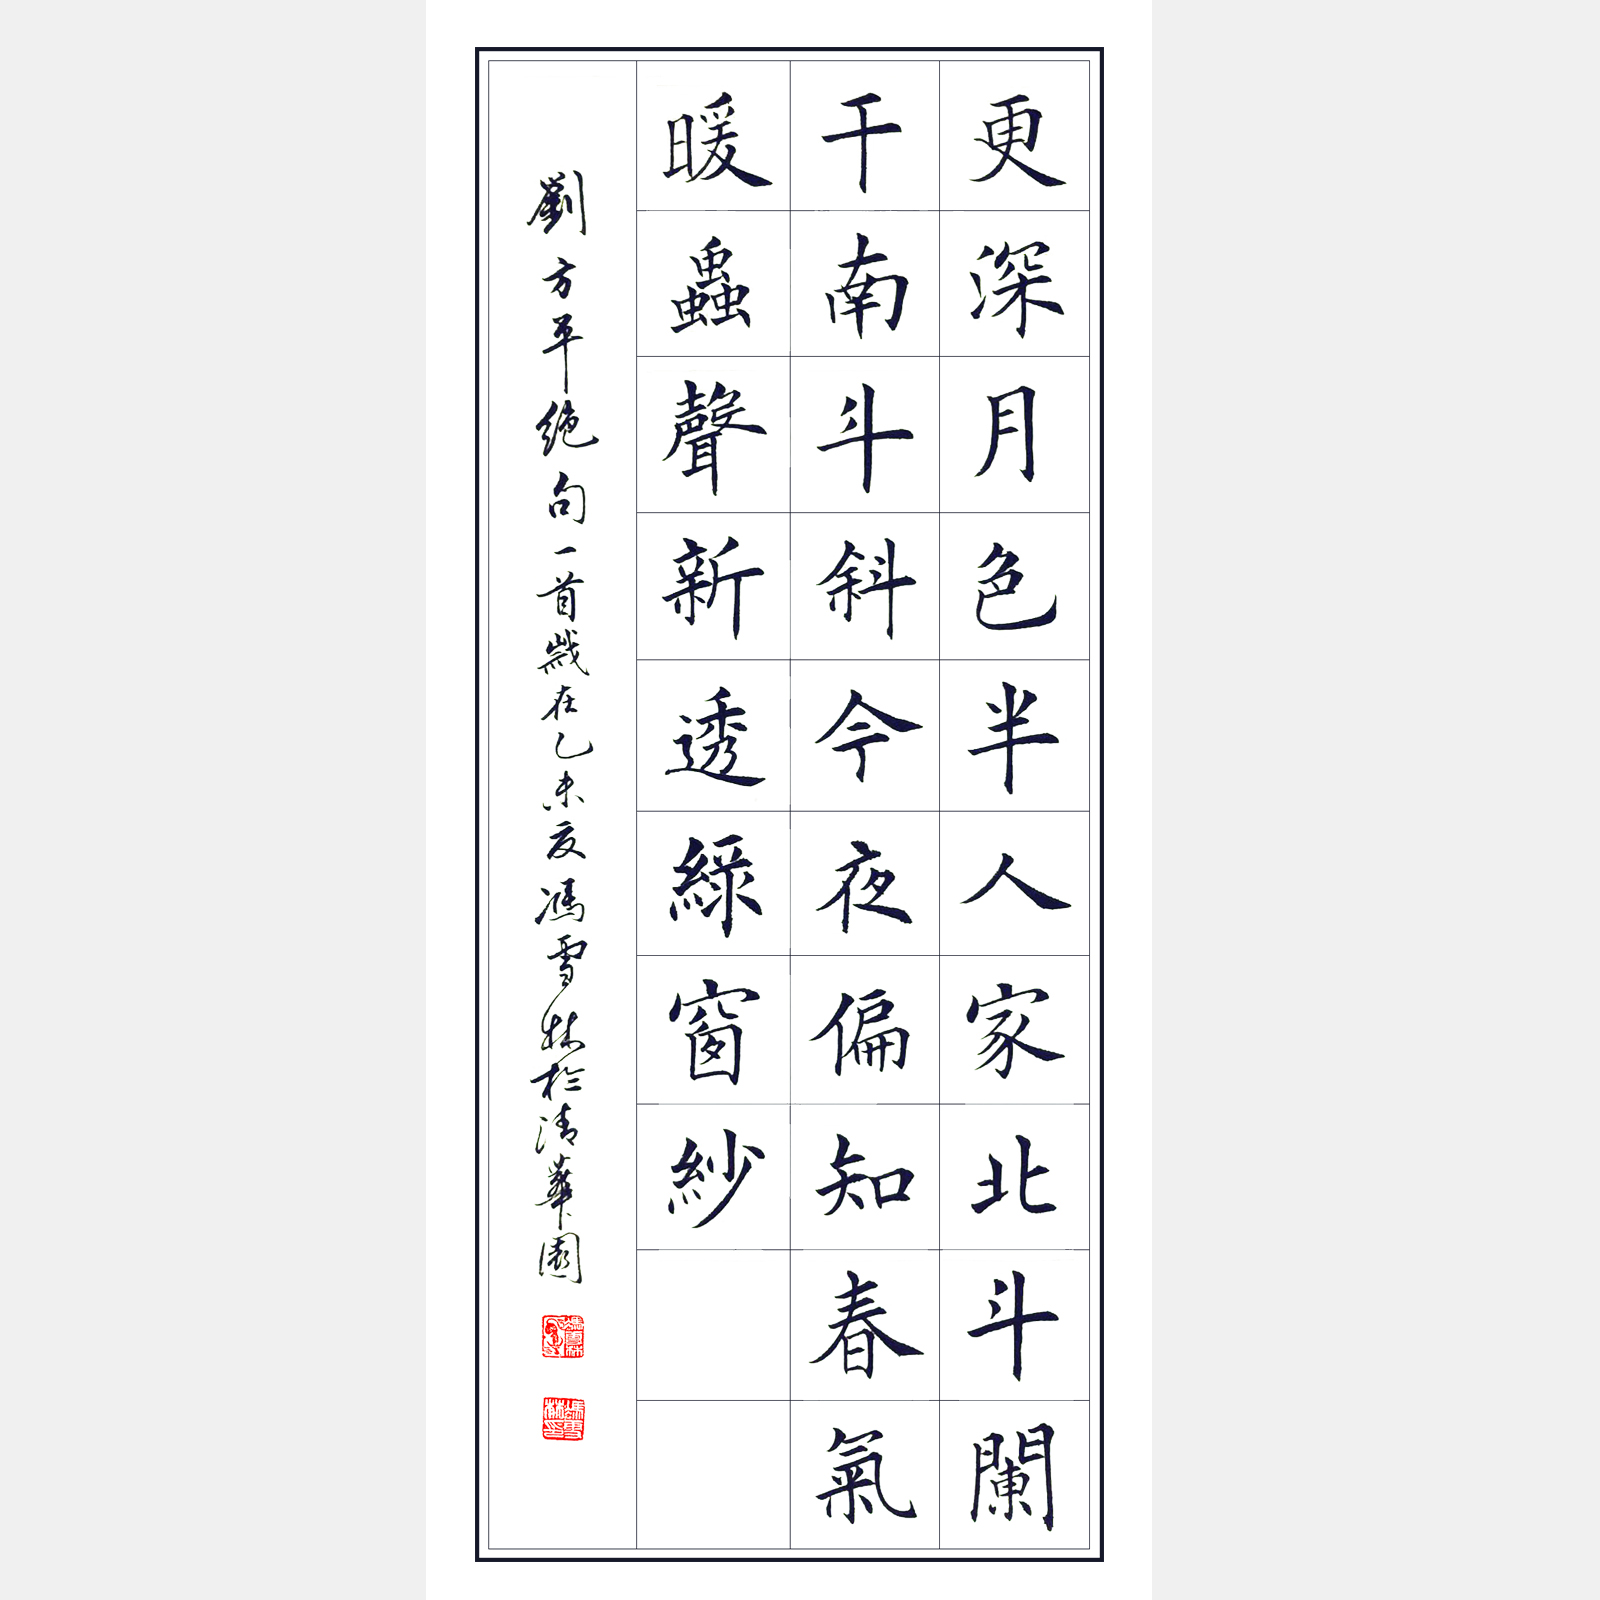 更深月色半人家北斗闌
干南斗斜今夜偏知春氣
暖蟲聲新透綠窗紗
劉方平絕句一首歲在乙未夏馮雪林於清華園